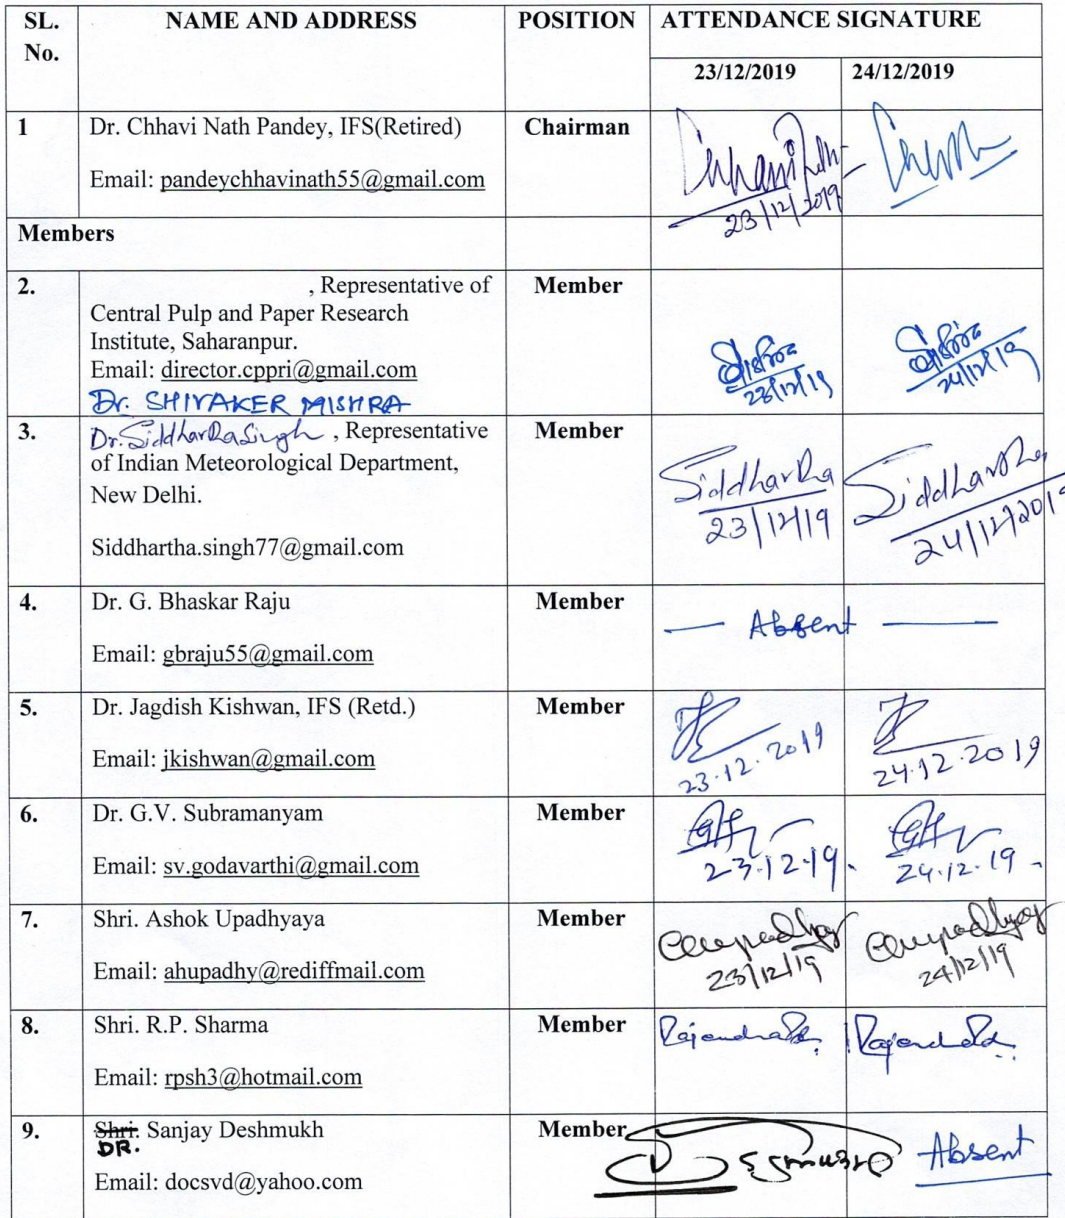 SL. No.
NAME AND ADDRESS
POSITION
ATTENDANCE SIGNATURE
23/12/2019
24/12/2019
1
Dr. Chhavi Nath Pandey, IFS(Retired)
Email: pandeychhavinath55@gmail.com
Chairman
23/12/2019
Members
2.
, Representative of
Central Pulp and Paper Research
Institute, Saharanpur.
Email: director.cppri@gmail.com
Dr. SHIVAKER MISHRA
Member
23/12/19
24/12/19
3.
Dr. Siddhartha Singh, Representative
of Indian Meteorological Department,
New Delhi.
Siddhartha.singh77@gmail.com
Member
Siddhartha
23/12/19
Siddhartha
24/12/2019
4.
Dr. G. Bhaskar Raju
Email: gbraju55@gmail.com
Member
— Absent —
5.
Dr. Jagdish Kishwan, IFS (Retd.)
Email: jkishwan@gmail.com
Member
23.12.2019
24.12.2019
6.
Dr. G.V. Subramanyam
Email: sv.godavarthi@gmail.com
Member
23.12.19.
24.12.19
7.
Shri. Ashok Upadhyaya
Email: ahupadhy@rediffmail.com
Member
23/12/19
24/12/19
8.
Shri. R.P. Sharma
Email: rpsh3@hotmail.com
Member
9.
Shri. Sanjay Deshmukh
DR.
Email: docsvd@yahoo.com
Member
Absent